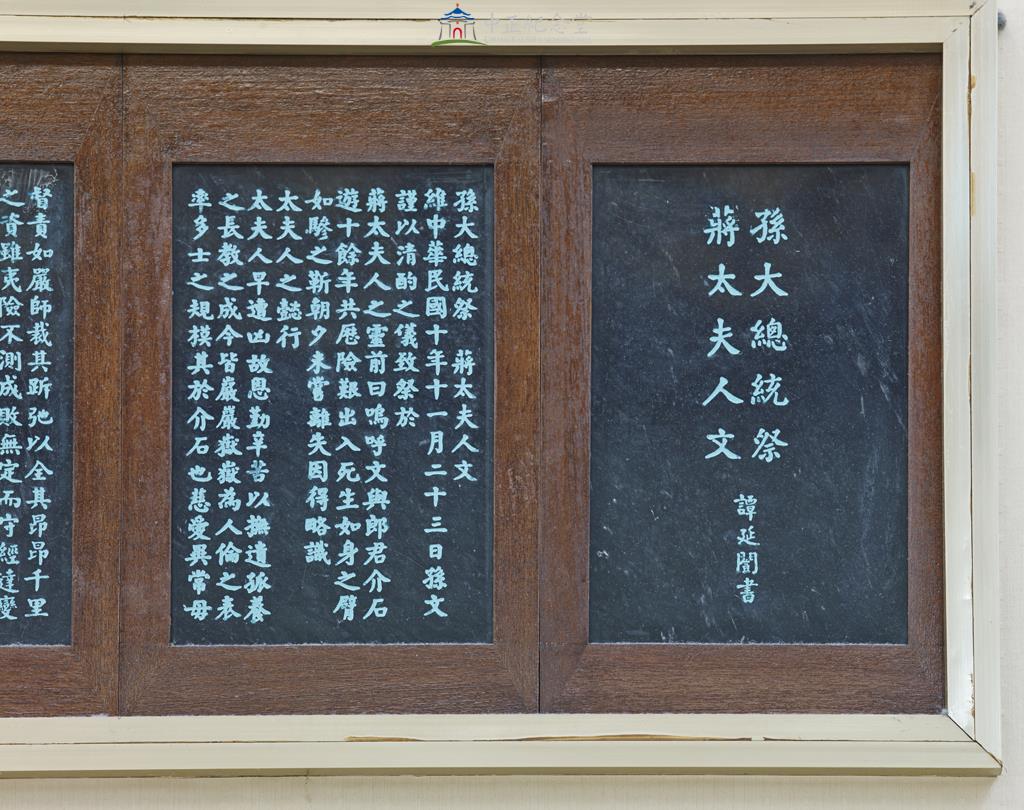 中正紀念堂
孫大總統祭
蔣太夫人文
譚延闓書
孫大總統祭　蔣太夫人文
維中華民國十年十一月二十三日孫文
謹以清酌之儀致祭於
蔣太夫人之靈前曰嗚呼文與郎君介石
遊十餘年共歷險艱出入死生如身之臂
如驂之靳朝夕未嘗離失因得略識
太夫人之懿行
太夫人早遭凶故恩勤辛苦以撫遺孤養
之長教之成今皆巖巖嶽嶽為人倫之表
率多士之規模其於介石也慈愛異常母
督責如嚴師裁其跅弛以全其昂昂千里
之資雖夷險不測成敗無定而守經達變